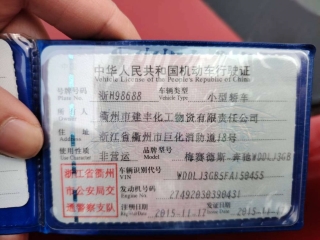 中华人民共和国机动车行驶证
Vehicle License of the People's Republic of China
号牌号码 浙H98688 车辆类型 小型轿车
Plate No. Vehicle Type
衢州市建丰化工物资有限责任公司
住 址 浙江省衢州市巨化消防道18号
使用性质 非营运 品牌型号 梅赛德斯-奔驰WDDLJ3GB
Use Character Model
浙江省衢州 车辆识别代号 WDDLJ3GB5FA150455
VIN
市公安局交 发动机号码 27492030390431
Engine No.
通警察支队 注册日期 2015-11-17 发证日期 2015-11-1